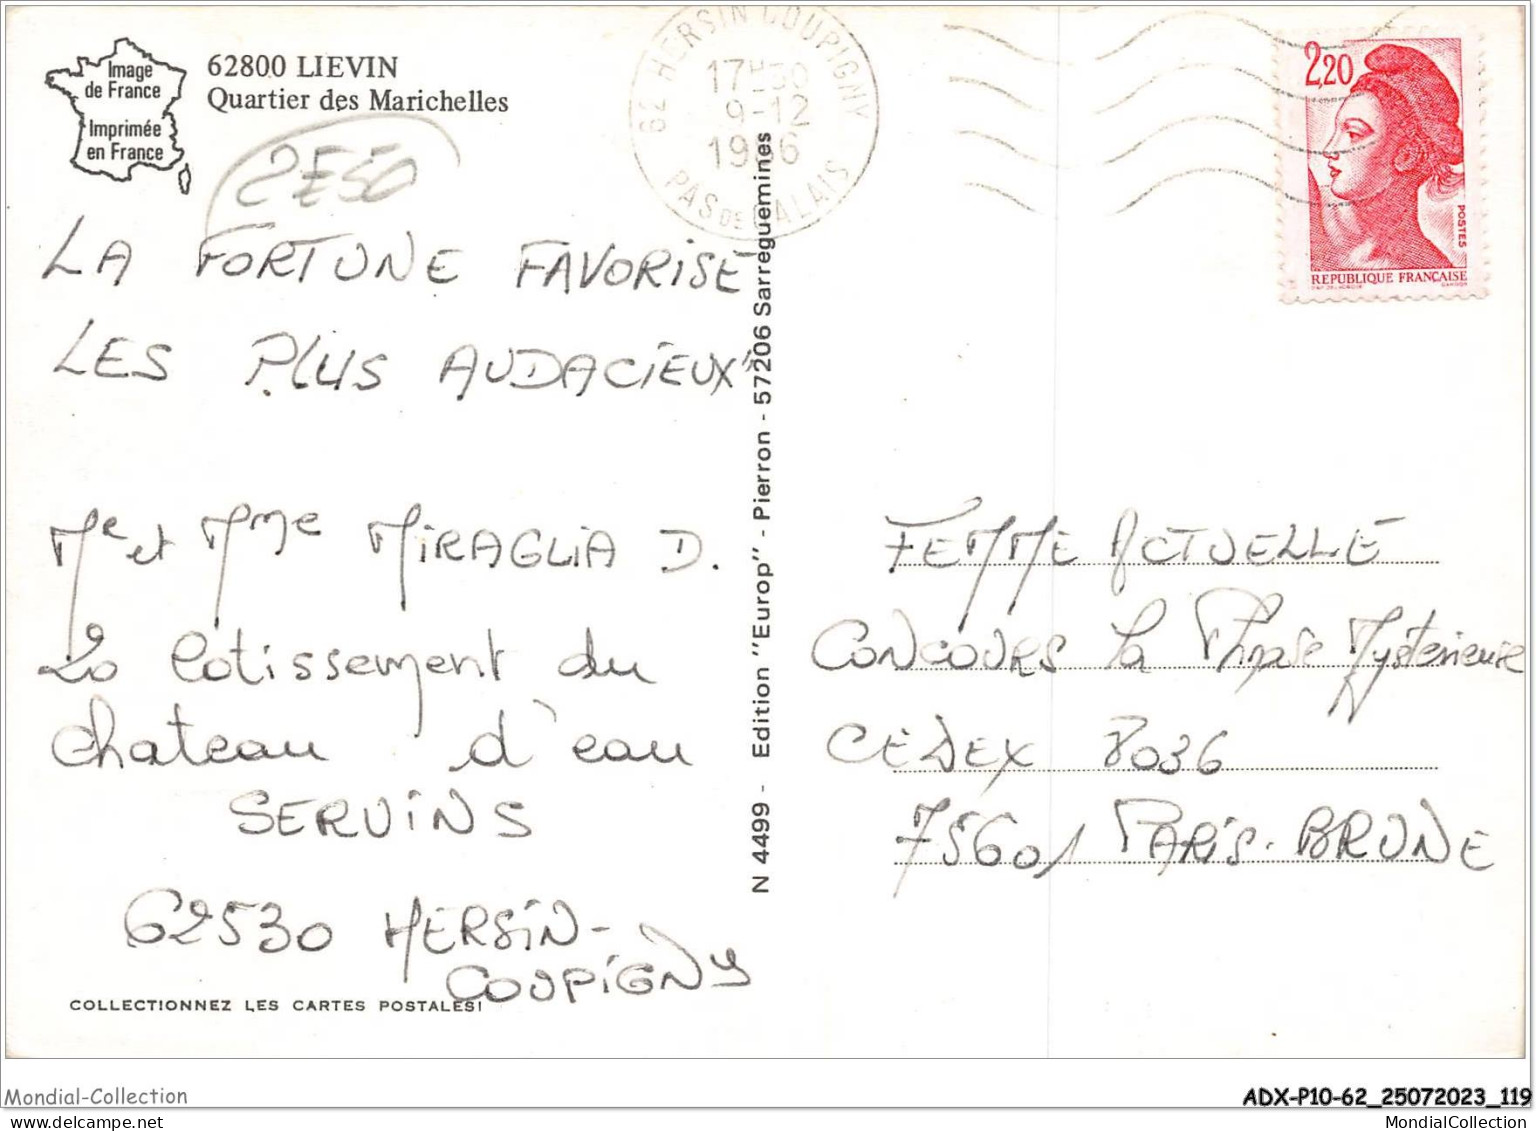 Image
de France
Imprimée
en France
62800 LIEVIN
Quartier des Marichelles
2E50
62 HERSIN COUPIGNY
17H30
9-12
1986
PAS DE CALAIS
2,20
POSTES
REPUBLIQUE FRANÇAISE
LA FORTUNE FAVORISE
LES PLUS AUDACIEUX"
Mr et Mme MIRAGLIA D.
20 lotissement du
chateau d'eau
SERVINS
62530 HERSIN-
COUPIGNY
COLLECTIONNEZ LES CARTES POSTALES!
N 4499 - Edition "Europ" - Pierron - 57206 Sarreguemines
FEMME ACTUELLE
CONCOURS La Phrase Mystérieuse
CEDEX 8036
75601 PARIS-BRUNE
Mondial-Collection
mondialcollection.delcampe.net
ADX-P10-62_25072023_119
MondialCollection